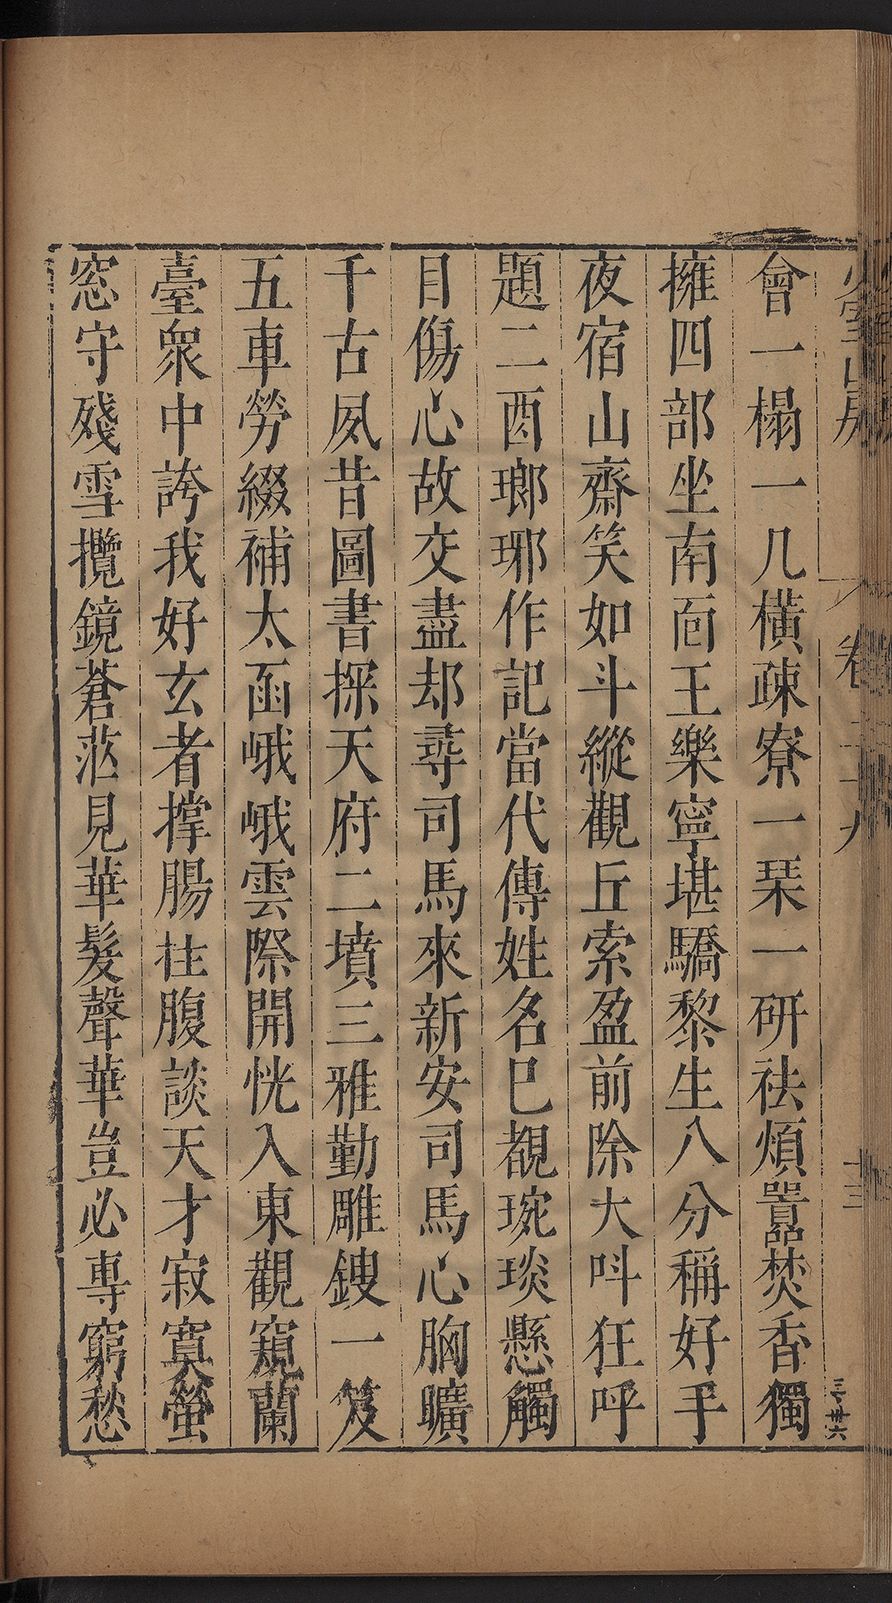 會一榻一几橫疎寮一琹一硏祛煩囂焚香獨
擁四部坐南面王樂寧堪驕黎生八分稱好手
夜宿山齋笑如斗縱觀丘索盈前除大呌狂呼
題二酉瑯琊作記當代傳姓名已覩琬琰懸觸
目傷心故交盡却尋司馬來新安司馬心胸曠
千古夙昔圖書探天府二墳三雅勤雕鎪一笈
五車勞綴補太函峨峨雲際開恍入東觀窺蘭
臺衆中誇我好玄者撑腸拄腹談天才寂寞螢
窓守殘雪攬鏡蒼茫見華髮聲華豈必專窮愁
少室山房
卷二十九
十三